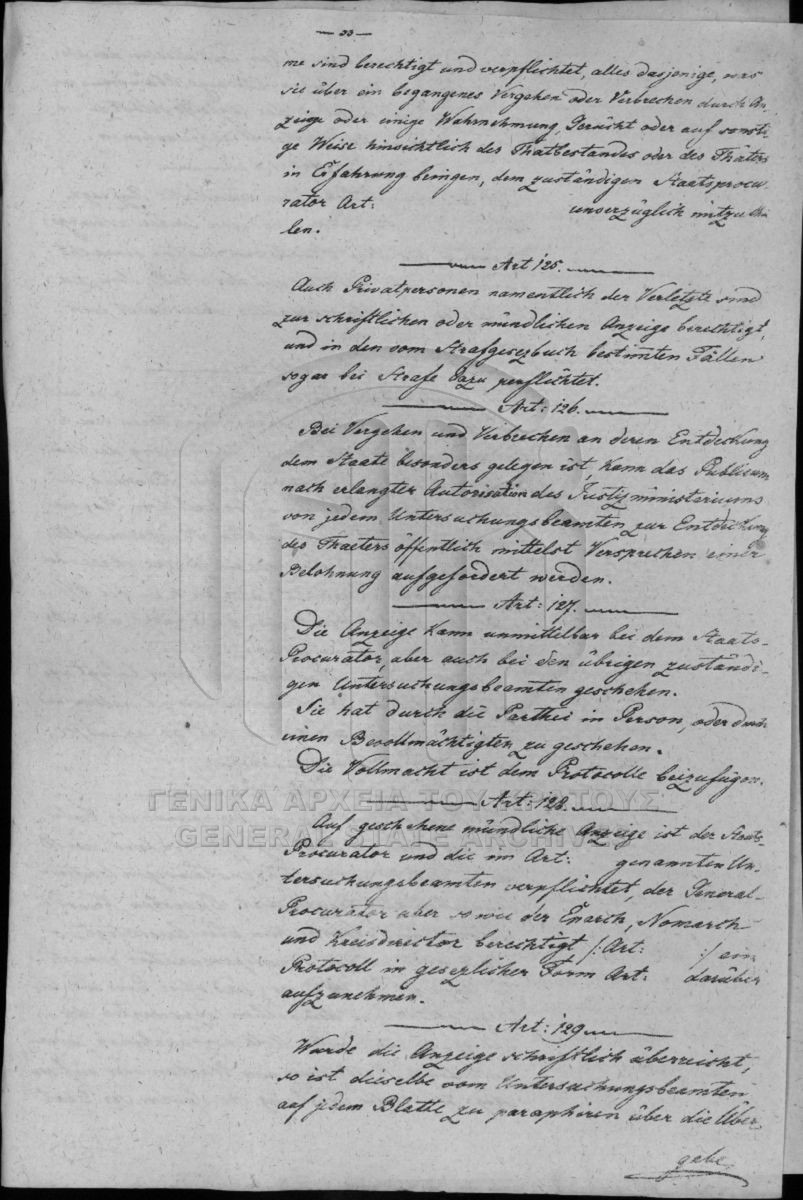 — 33 —
me sind berechtigt und verpflichtet, alles dasjenige, was
sie über ein begangenes Vergehen oder Verbrechen durch An-
zeige oder einige Wahrnehmung, Gerücht oder auf sonsti-
ge Weise hinsichtlich des Thatbestandes oder des Thäters
in Erfahrung bringen, dem zuständigen Staatsprocu-
rator Art: unverzüglich mitzuthei-
len.
Art 125.
Auch Privatpersonen namentlich der Verletzte sind
zur schriftlichen oder mündlichen Anzeige berechtigt,
und in den vom Strafgesezbuch bestimten Fällen
sogar bei Strafe dazu verpflichtet.
Art: 126.
Bei Vergehen und Verbrechen an deren Entdeckung
dem Staate besonders gelegen ist, kann das Publicum
nach erlangter Autorisation des Justizministeriums
von jedem Untersuchungsbeamten zur Entdeckung
des Thaeters öffentlich mittelst Versprechen einer
Belohnung aufgefordert werden.
Art: 127.
Die Anzeige kann unmittelbar bei dem Staats-
Procurator, aber auch bei den übrigen zuständi-
gen Untersuchungsbeamten geschehen.
Sie hat durch die Parthei in Person, oder durch
einen Bevollmächtigten zu geschehen.
Die Vollmacht ist dem Protocolle beizufügen.
ΓΕΝΙΚΑ ΑΡΧΕΙΑ ΤΟΥ ΚΡΑΤΟΥΣ
Art: 128.
GENERAL STATE ARCHIVES
Auf geschehene mündliche Anzeige ist der Staats-
Procurator und die im Art: genannten Un-
tersuchungsbeamten verpflichtet, der General-
Procurator aber so wie der Eparch, Nomarch
und Kreisdirector berechtigt /: Art: :/ ein
Protocoll in gesezlicher Form Art: darüber
aufzunehmen.
Art: 129
Wurde die Anzeige schriftlich überreicht,
so ist dieselbe vom Untersuchungsbeamten
auf jedem Blatte zu paraphiren über die Über
gebe